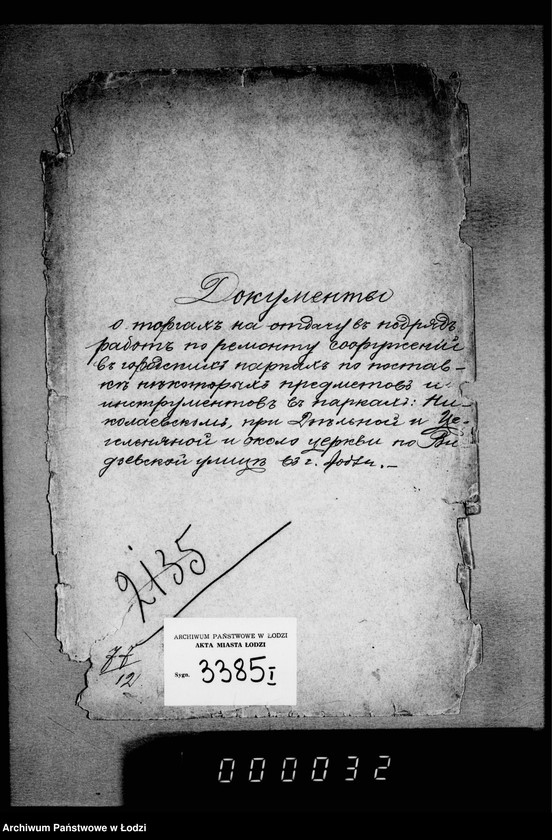 Документы
о торгахъ на отдачу въ подрядъ
работъ по ремонту сооруженій
въ городскихъ паркахъ по постав-
кѣ нѣкоторыхъ предметовъ и
инструментовъ въ паркахъ: Ни-
колаевскомъ, при Дѣльной и Це-
гельняной и около церкви по Ви-
дзевской улицѣ въ г. Лодзи.–
2135
77
12
ARCHIWUM PAŃSTWOWE W ŁODZI
AKTA MIASTA ŁODZI
Sygn. 3385 I
000032
Archiwum Państwowe w Łodzi